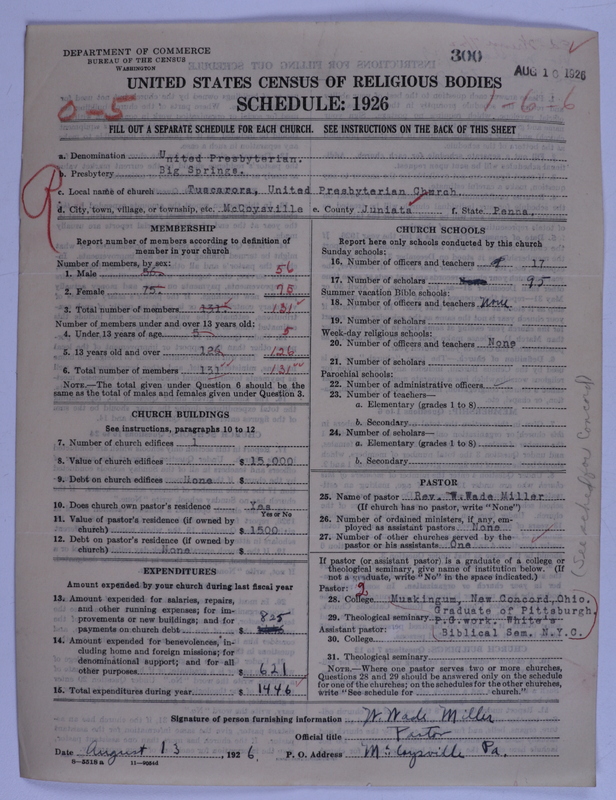 DEPARTMENT OF COMMERCE
BUREAU OF THE CENSUS
WASHINGTON
300
AUG 16 1926
UNITED STATES CENSUS OF RELIGIOUS BODIES
SCHEDULE: 1926
0-5
1-6-6
FILL OUT A SEPARATE SCHEDULE FOR EACH CHURCH. SEE INSTRUCTIONS ON THE BACK OF THIS SHEET
a. Denomination United Presbyterian.
b. Presbytery Big Springs.
c. Local name of church Tuscarora, United Presbyterian Church.
d. City, town, village, or township, etc. McCoysville e. County Juniata f. State Penna.
R
MEMBERSHIP
Report number of members according to definition of member in your church
Number of members, by sex:
1. Male 56 56
2. Female 75. 75
3. Total number of members 131 131
Number of members under and over 13 years old:
4. Under 13 years of age 5 5
5. 13 years old and over 126 126
6. Total number of members 131 131
NOTE.—The total given under Question 6 should be the same as the total of males and females given under Question 3.
CHURCH BUILDINGS
See instructions, paragraphs 10 to 12
7. Number of church edifices 1
8. Value of church edifices $ 15,000
9. Debt on church edifices None $
10. Does church own pastor's residence Yes
Yes or No
11. Value of pastor's residence (if owned by church) $ 1500
12. Debt on pastor's residence (if owned by church) None $
EXPENDITURES
Amount expended by your church during last fiscal year
13. Amount expended for salaries, repairs, and other running expenses; for improvements or new buildings; and for payments on church debt $ 825
14. Amount expended for benevolences, including home and foreign missions; for denominational support; and for all other purposes $ 621
15. Total expenditures during year $ 1446
CHURCH SCHOOLS
Report here only schools conducted by this church
Sunday schools:
16. Number of officers and teachers 17
17. Number of scholars 95
Summer vacation Bible schools:
18. Number of officers and teachers None
19. Number of scholars
Week-day religious schools:
20. Number of officers and teachers None
21. Number of scholars
Parochial schools:
22. Number of administrative officers
23. Number of teachers—
a. Elementary (grades 1 to 8)
b. Secondary
24. Number of scholars—
a. Elementary (grades 1 to 8)
b. Secondary
PASTOR
25. Name of pastor Rev. W.Wade Miller
(If church has no pastor, write "None")
26. Number of ordained ministers, if any, employed as assistant pastors None
27. Number of other churches served by the pastor or his assistants One
If pastor (or assistant pastor) is a graduate of a college or theological seminary, give name of institution below. (If not a graduate, write "No" in the space indicated.)
Pastor: 2
28. College Muskingum, New Concord,Ohio.
Graduate of Pittsburgh.
29. Theological seminary P.G.work. White's
Assistant pastor: Biblical Sem. N.Y.C.
30. College
31. Theological seminary
NOTE.—Where one pastor serves two or more churches, Questions 28 and 29 should be answered only on the schedule for one of the churches; on the schedules for the other churches, write "See schedule for church."
Signature of person furnishing information W Wade Miller
Official title Pastor
Date August 13, 1926. P. O. Address McCoysville Pa.
8-5518 a 11-9084d